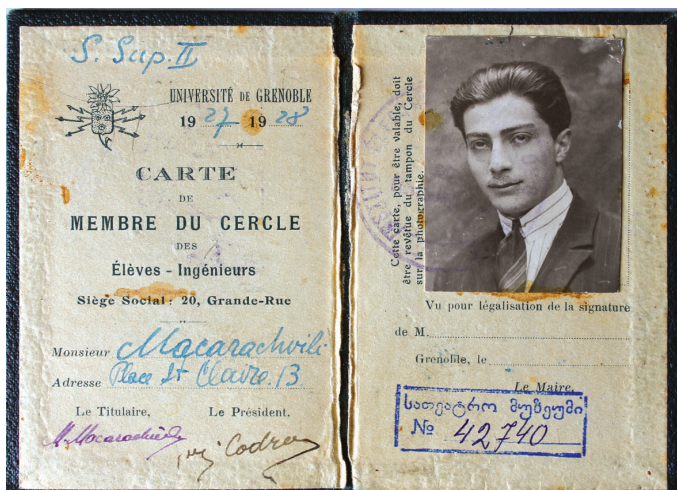 S. Sup. II
UNIVERSITÉ DE GRENOBLE
1927-1928
CARTE
DE
MEMBRE DU CERCLE
DES
Élèves - Ingénieurs
Siège Social : 20, Grande-Rue
Monsieur Macarachvili
Adresse Place St Claire. 13
Le Titulaire, Le Président.
M. Macarachvili
Cette carte, pour être valable, doit
être revêtue du tampon du Cercle
sur la photographie.
Vu pour légalisation de la signature
de M.
Grenoble, le
Le Maire,
სათეატრო მუზეუმი
№ 42740